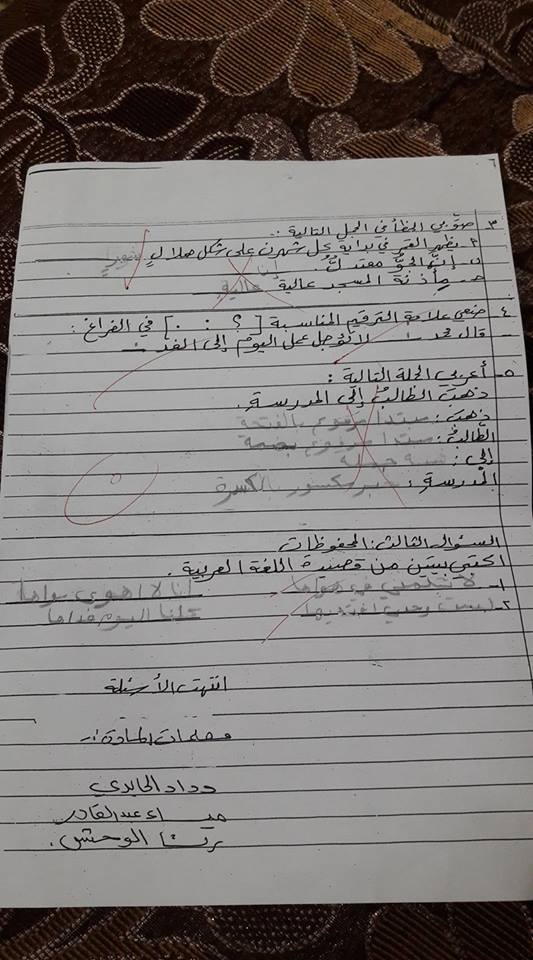 ٦
٣- صوّبي الخطأ في الجمل التالية :
أ- يظهر القمر في بداية كل شهرن على شكل هلالٍ شهرا
ب- إنّ الحقُّ معتدلٌ.
جـ- مأذنة المسجد عالية عالية
٤- ضعي علامة الترقيم المناسبة [ ؟ ، : ، . ] في الفراغ :
- قال محمد - لا تؤجل عمل اليوم إلى الغد -
٥- أعربي الجملة التالية :
ذهبَ الطالبُ إلى المدرسة.
ذهبَ: مبتدأ مرفوع بالفتحة
الطّالبُ: مبتدأ مرفوع بضمة
إلى :
المدرسة : مكسور بالكسرة
السؤال الثالث: المحفوظات
اكتبي بيتين من قصيدة اللغة العربية .
١- لا تلمني في هواها أنا لا أهوى سواها
٢- لست وحدي أفتديها كلنا اليوم فداها
انتهت الأسئلة
معلمات المادة :-
وداد الحايدي
عبد القادر
رشا الوحش .